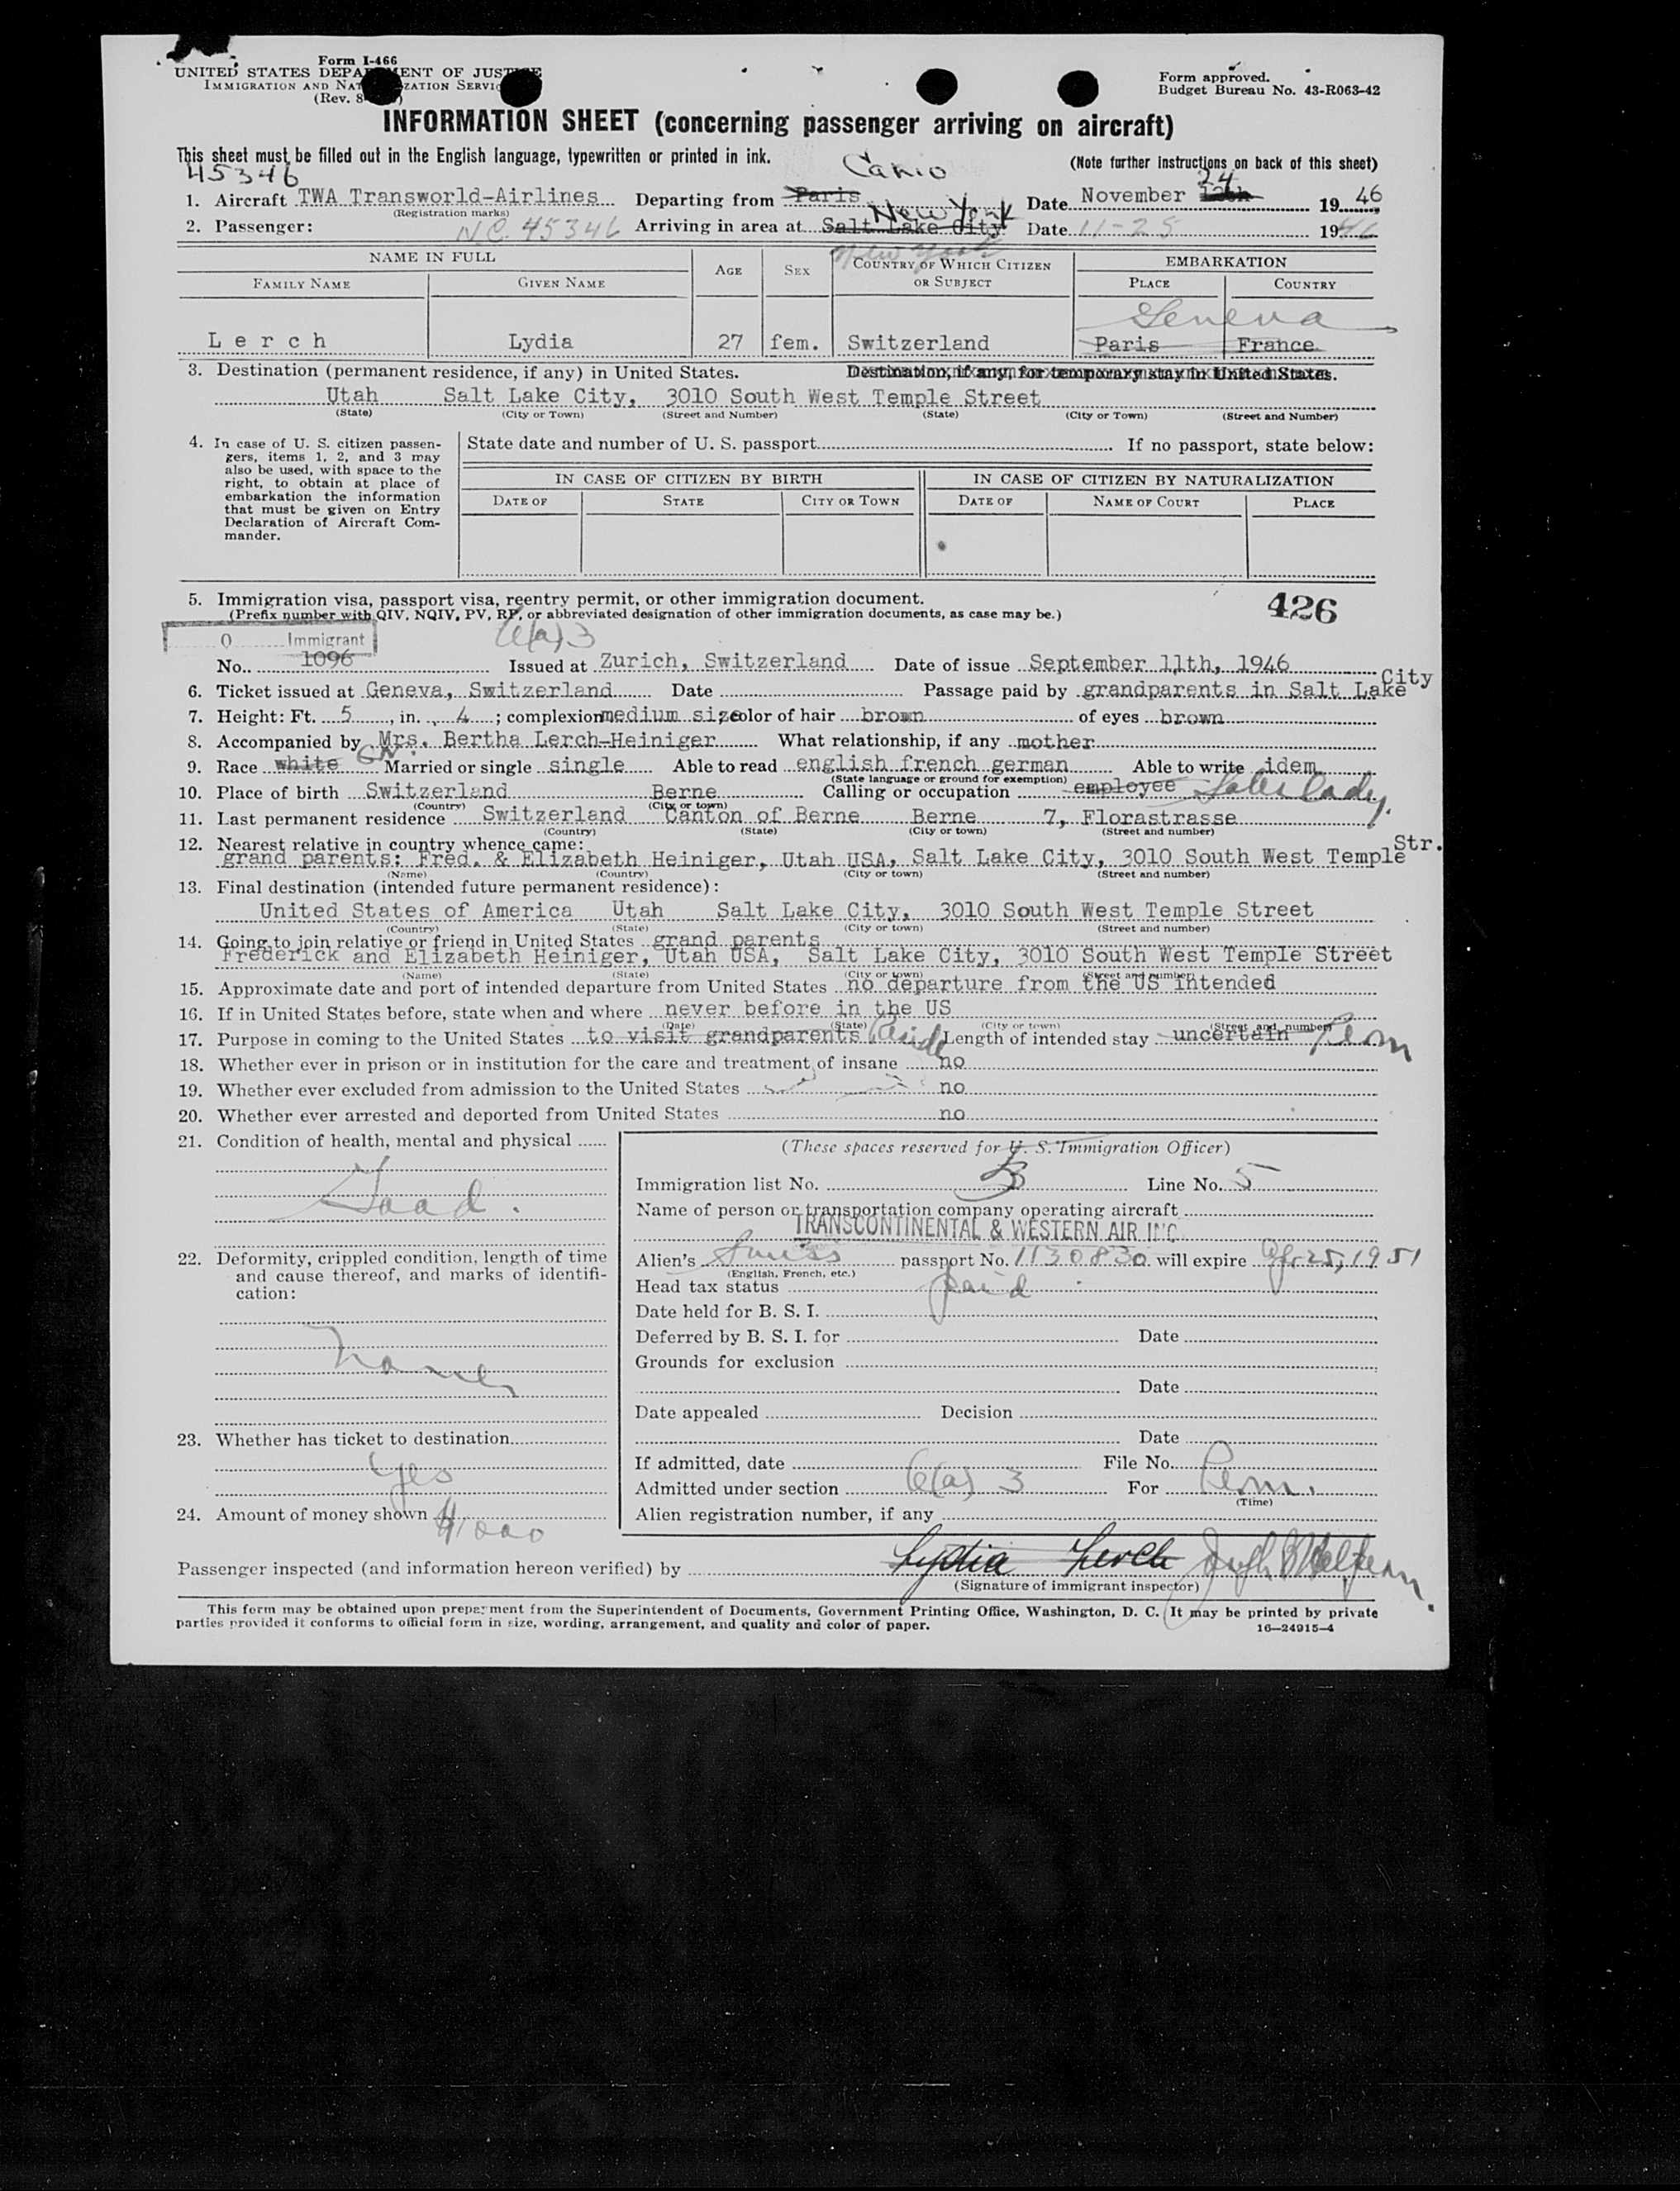 Form I-466
UNITED STATES DEPARTMENT OF JUSTICE
IMMIGRATION AND NATURALIZATION SERVICE
(Rev. 8
Form approved.
Budget Bureau No. 43-R063-42
INFORMATION SHEET (concerning passenger arriving on aircraft)
This sheet must be filled out in the English language, typewritten or printed in ink.
(Note further instructions on back of this sheet)
45346
Cario
24
1. Aircraft TWA Transworld-Airlines Departing from Paris Date November 12th 1946
(Registration marks)
New York
2. Passenger: N.C. 45346 Arriving in area at Salt Lake City Date 11-25 1946
New York
NAME IN FULL AGE SEX COUNTRY OF WHICH CITIZEN OR SUBJECT EMBARKATION
FAMILY NAME GIVEN NAME PLACE COUNTRY
Geneva
Lerch Lydia 27 fem. Switzerland Paris France
3. Destination (permanent residence, if any) in United States. Destination, if any, for temporary stay in United States.
Utah Salt Lake City, 3010 South West Temple Street
(State) (City or Town) (Street and Number) (State) (City or Town) (Street and Number)
4. In case of U. S. citizen passengers, items 1, 2, and 3 may also be used, with space to the right, to obtain at place of embarkation the information that must be given on Entry Declaration of Aircraft Commander.
State date and number of U. S. passport If no passport, state below:
IN CASE OF CITIZEN BY BIRTH IN CASE OF CITIZEN BY NATURALIZATION
DATE OF STATE CITY OR TOWN DATE OF NAME OF COURT PLACE
5. Immigration visa, passport visa, reentry permit, or other immigration document. 426
(Prefix number with QIV, NQIV, PV, RP, or abbreviated designation of other immigration documents, as case may be.)
Q Immigrant 6(a)3
No. 1096 Issued at Zurich, Switzerland Date of issue September 11th, 1946
6. Ticket issued at Geneva, Switzerland Date Passage paid by grandparents in Salt Lake City
7. Height: Ft. 5, in. 4; complexion medium size color of hair brown of eyes brown
8. Accompanied by Mrs. Bertha Lerch-Heiniger What relationship, if any mother
9. Race white Married or single single Able to read english french german Able to write idem
(State language or ground for exemption)
10. Place of birth Switzerland Berne Calling or occupation employee Saleslady.
(Country) (City or town)
11. Last permanent residence Switzerland Canton of Berne Berne 7, Florastrasse
(Country) (State) (City or town) (Street and number)
12. Nearest relative in country whence came:
grand parents: Fred. & Elizabeth Heiniger, Utah USA, Salt Lake City, 3010 South West Temple Str.
(Name) (Country) (City or town) (Street and number)
13. Final destination (intended future permanent residence):
United States of America Utah Salt Lake City, 3010 South West Temple Street
(Country) (State) (City or town) (Street and number)
14. Going to join relative or friend in United States grand parents
Frederick and Elizabeth Heiniger, Utah USA, Salt Lake City, 3010 South West Temple Street
(Name) (State) (City or town) (Street and number)
15. Approximate date and port of intended departure from United States no departure from the US intended
16. If in United States before, state when and where never before in the US
(Date) (State) (City or town) (Street and number)
17. Purpose in coming to the United States to visit grandparents Reside Length of intended stay uncertain Perm
18. Whether ever in prison or in institution for the care and treatment of insane no
19. Whether ever excluded from admission to the United States no
20. Whether ever arrested and deported from United States no
21. Condition of health, mental and physical
Good.
22. Deformity, crippled condition, length of time and cause thereof, and marks of identification:
None
23. Whether has ticket to destination
Yes
24. Amount of money shown
(These spaces reserved for U. S. Immigration Officer)
Immigration list No. Line No. 5
Name of person or transportation company operating aircraft
TRANSCONTINENTAL & WESTERN AIR INC
Alien's Swiss passport No. 1130830 will expire 25, 1951
(English, French, etc.)
Head tax status paid
Date held for B. S. I.
Deferred by B. S. I. for Date
Grounds for exclusion
Date
Date appealed Decision
Date
If admitted, date File No.
Admitted under section 6(a) 3 For Perm.
(Time)
Alien registration number, if any
Passenger inspected (and information hereon verified) by Lydia Lerch
(Signature of immigrant inspector)
This form may be obtained upon prepayment from the Superintendent of Documents, Government Printing Office, Washington, D. C. It may be printed by private
parties provided it conforms to official form in size, wording, arrangement, and quality and color of paper.
16—24915-4